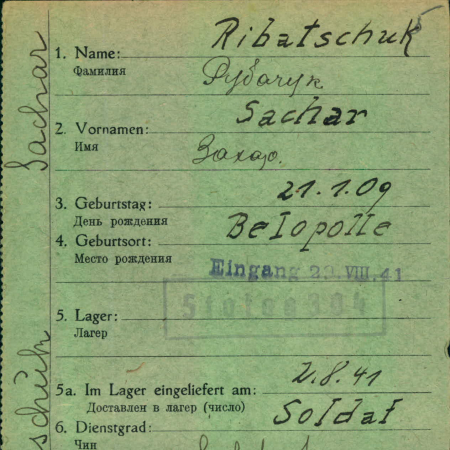 Ribatschuk
1. Name:
Фамилия
Рубачук
Sachar
2. Vornamen:
Имя
Захар.
21.1.09
3. Geburtstag:
День рождения
Belopolle
4. Geburtsort:
Место рождения
Eingang 29. VIII. 41
Stalag 304
5. Lager:
Лагер
2.8.41
5a. Im Lager eingeliefert am:
Доставлен в лагер (число)
Soldat
6. Dienstgrad:
Чин
Sachar